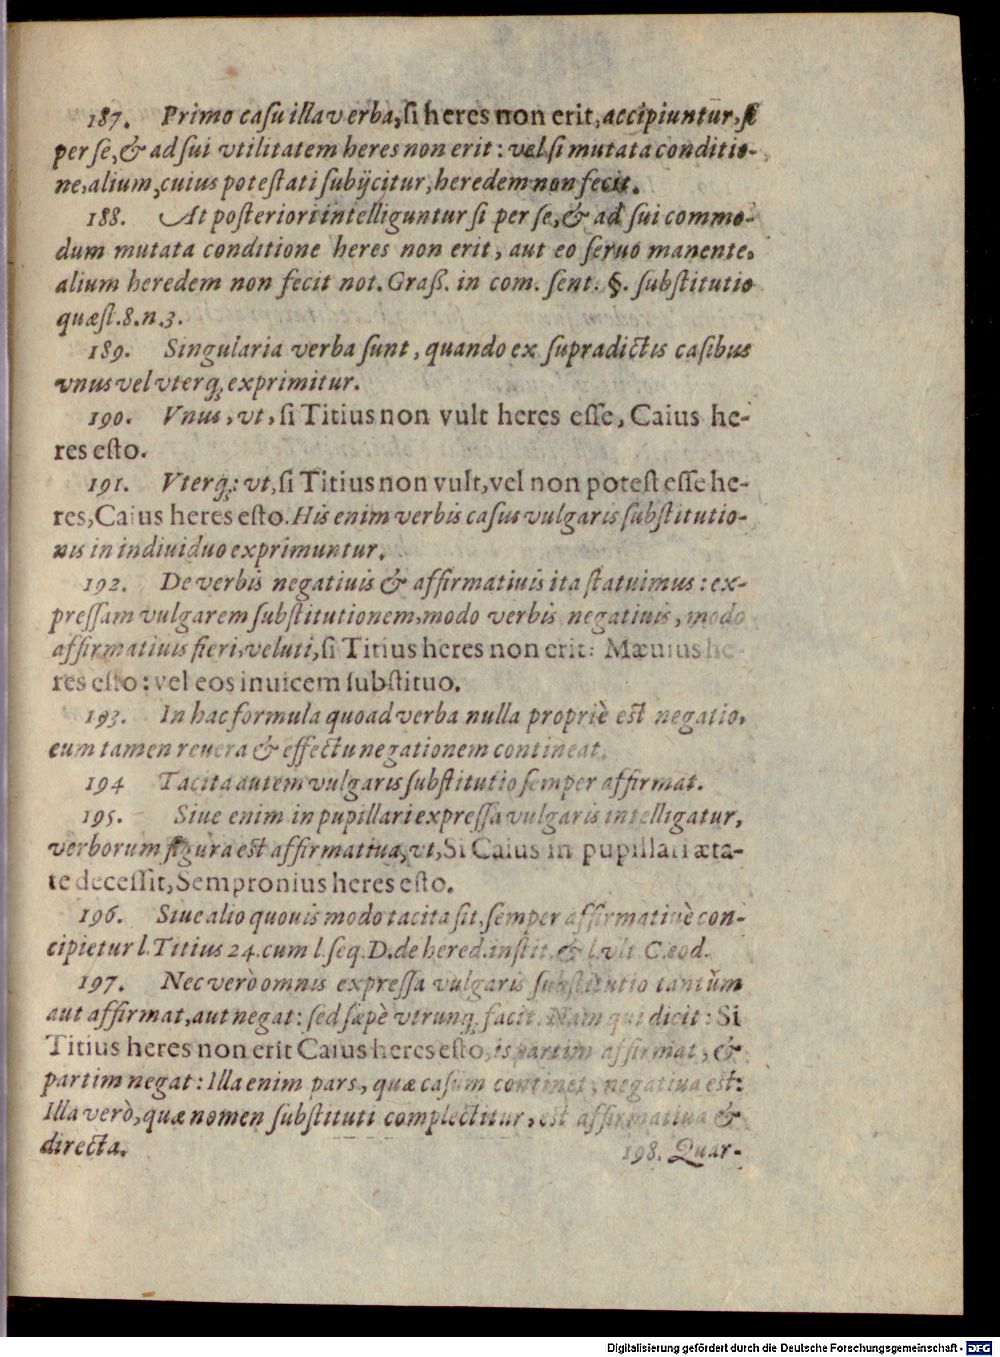 187. Primo casu illa verba, si heres non erit, accipiuntur, si
per se, & ad sui vtilitatem heres non erit: vel si mutata conditio-
ne, alium, cuius potestati subijcitur, heredem non fecit.
188. At posteriori intelliguntur si per se, & ad sui commo-
dum mutata conditione heres non erit, aut eo seruo manente,
alium heredem non fecit not. Graß. in com. sent. §. substitutio
quæst. 8. n. 3.
189. Singularia verba sunt, quando ex supradictis casibus
vnus vel vterq; exprimitur.
190. Vnus, vt, si Titius non vult heres esse, Caius he-
res esto.
191. Vterq;: vt, si Titius non vult, vel non potest esse he-
res, Caius heres esto. His enim verbis casus vulgaris substitutio-
nis in indiuiduo exprimuntur.
192. De verbis negatiuis & affirmatiuis ita statuimus: ex-
pressam vulgarem substitutionem, modo verbis negatiuis, modo
affirmatiuis fieri, veluti, si Titius heres non erit: Mæuius he-
res esto: vel eos inuicem substituo.
193. In hac formula quoad verba nulla propriè est negatio,
cum tamen reuera & effectu negationem contineat.
194 Tacita autem vulgaris substitutio semper affirmat.
195. Siue enim in pupillari expressa vulgaris intelligatur,
verborum figura est affirmatiua, vt, Si Caius in pupillari æta-
te decessit, Sempronius heres esto.
196. Siue alio quouis modo tacita sit, semper affirmatiuè con-
cipietur l. Titius 24. cum l. seq. D. de hered. instit. & l. vlt. C. eod.
197. Nec verò omnis expressa vulgaris substitutio tantùm
aut affirmat, aut negat: sed sæpè vtrunq; facit. Nam qui dicit: Si
Titius heres non erit Caius heres esto, is partim affirmat, &
partim negat: Illa enim pars, quæ casum continet, negatiua est:
Illa verò, quæ nomen substituti complectitur, est affirmatiua &
directa.
198. Quar-
Digitalisierung gefördert durch die Deutsche Forschungsgemeinschaft - DFG